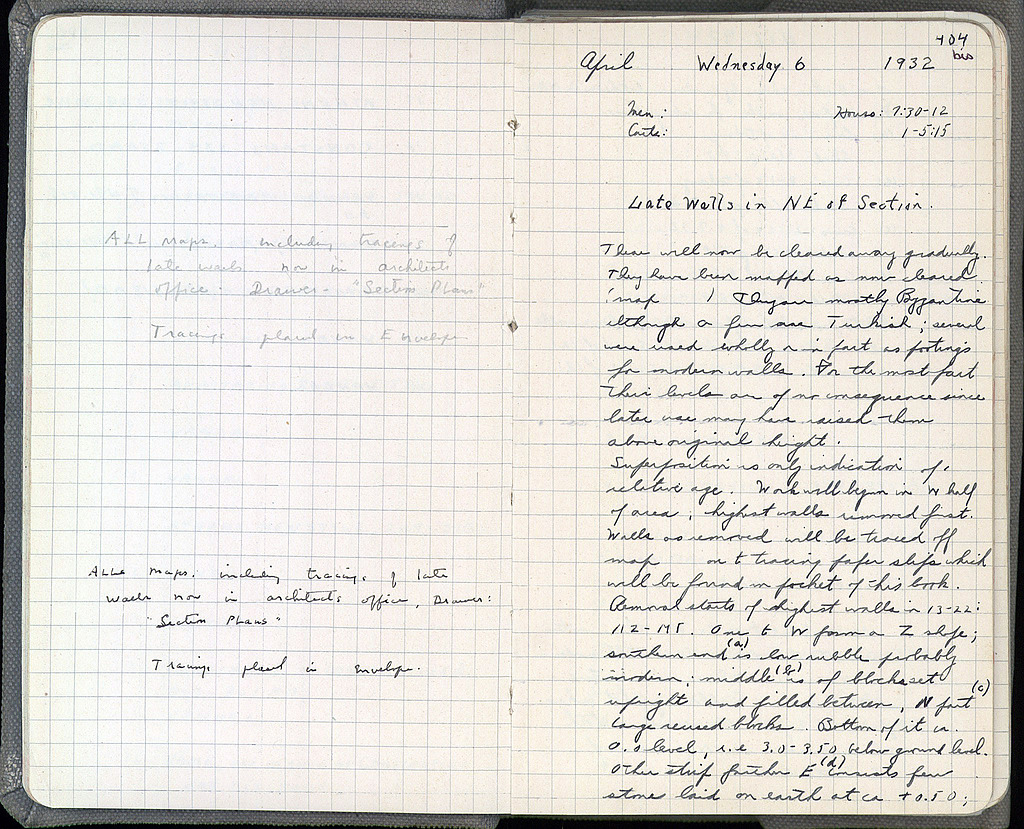 ALL maps. including tracings of
late walls now in architects
office. Drawer - "Section Plans"
Tracings placed in Envelope
ALL maps. including tracings of late
walls now in architects office, Drawer:
"Section Plans"
Tracings placed in envelope.
404
bis
April Wednesday 6 1932
Men: Hours: 7:30-12
Carts: 1-5:15
Late Walls in NE of Section.
These will now be cleared away gradually.
They have been mapped as now cleared
(map ) They are mostly Byzantine
although a few are Turkish; several
were used wholly or in part as footings
for modern walls. For the most part
their levels are of no consequence since
later use may have raised them
above original height.
Superposition is only indication of
relative age. Work will begin in W half
of area; highest walls removed first.
Walls as removed will be traced off
map on to tracing paper slips which
will be found in pocket of this book.
Removal starts of highest walls in 13-22:
One to W forms a Z shape;
southern end (a) is low rubble probably
modern; middle (b) is of blocks set
upright and filled between, N part (c)
large reused blocks. Bottom of it ca.
0.0 level, i.e 3.0-3.50 below ground level.
Other strip further E (d) consists few
stones laid on earth at ca +0.50;